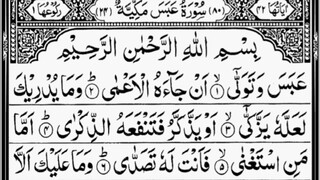 اٰيَاتُهَا ٤٢ (٨٠) سُوْرَةُ عَبَسَ مَكِّيَّةٌ (٢٤) رُكُوْعُهَا ١
بِسْمِ اللّٰهِ الرَّحْمٰنِ الرَّحِيْمِ
عَبَسَ وَتَوَلّٰىۤ ۙ﴿۱﴾ اَنْ جَآءَهُ الْاَعْمٰى ؕ﴿۲﴾ وَمَا يُدْرِيْكَ
لَعَلَّهٗ يَزَّكّٰىۤ ۙ﴿۳﴾ اَوْ يَذَّكَّرُ فَتَنْفَعَهُ الذِّكْرٰى ؕ﴿۴﴾ اَمَّا
مَنِ اسْتَغْنٰى ۙ﴿۵﴾ فَاَنْتَ لَهٗ تَصَدّٰى ؕ﴿۶﴾ وَمَا عَلَيْكَ اَلَّا